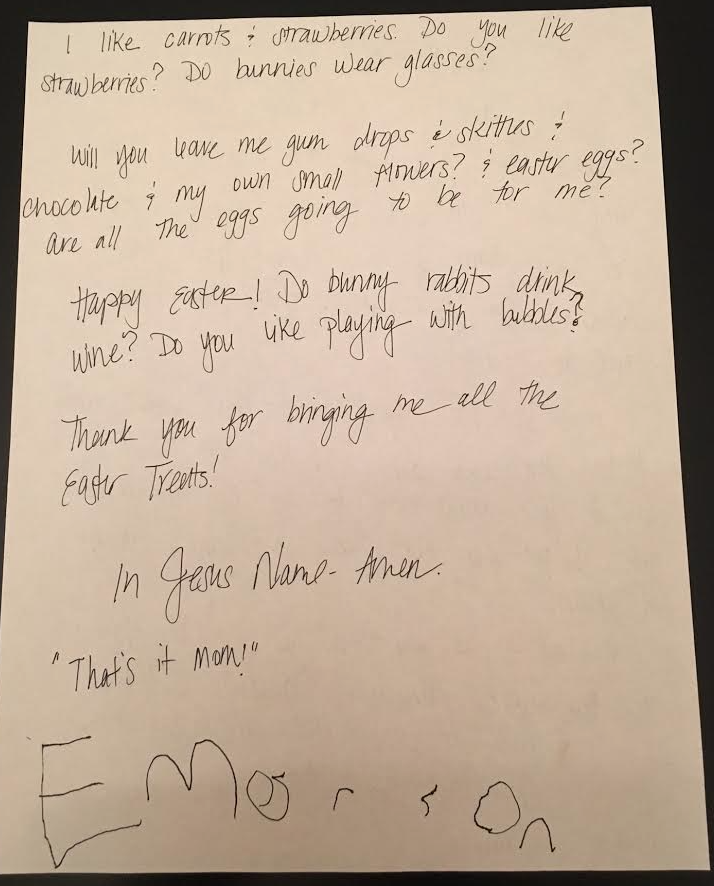 I like carrots & strawberries. Do you like
strawberries? Do bunnies wear glasses?
Will you leave me gum drops & skittles &
chocolate & my own small flowers? & easter eggs?
Are all the eggs going to be for me?
Happy Easter! Do bunny rabbits drink
wine? Do you like playing with bubbles?
Thank you for bringing me all the
Easter Treats!
In Jesus Name - Amen.
"That's it Mom!"
EMerson